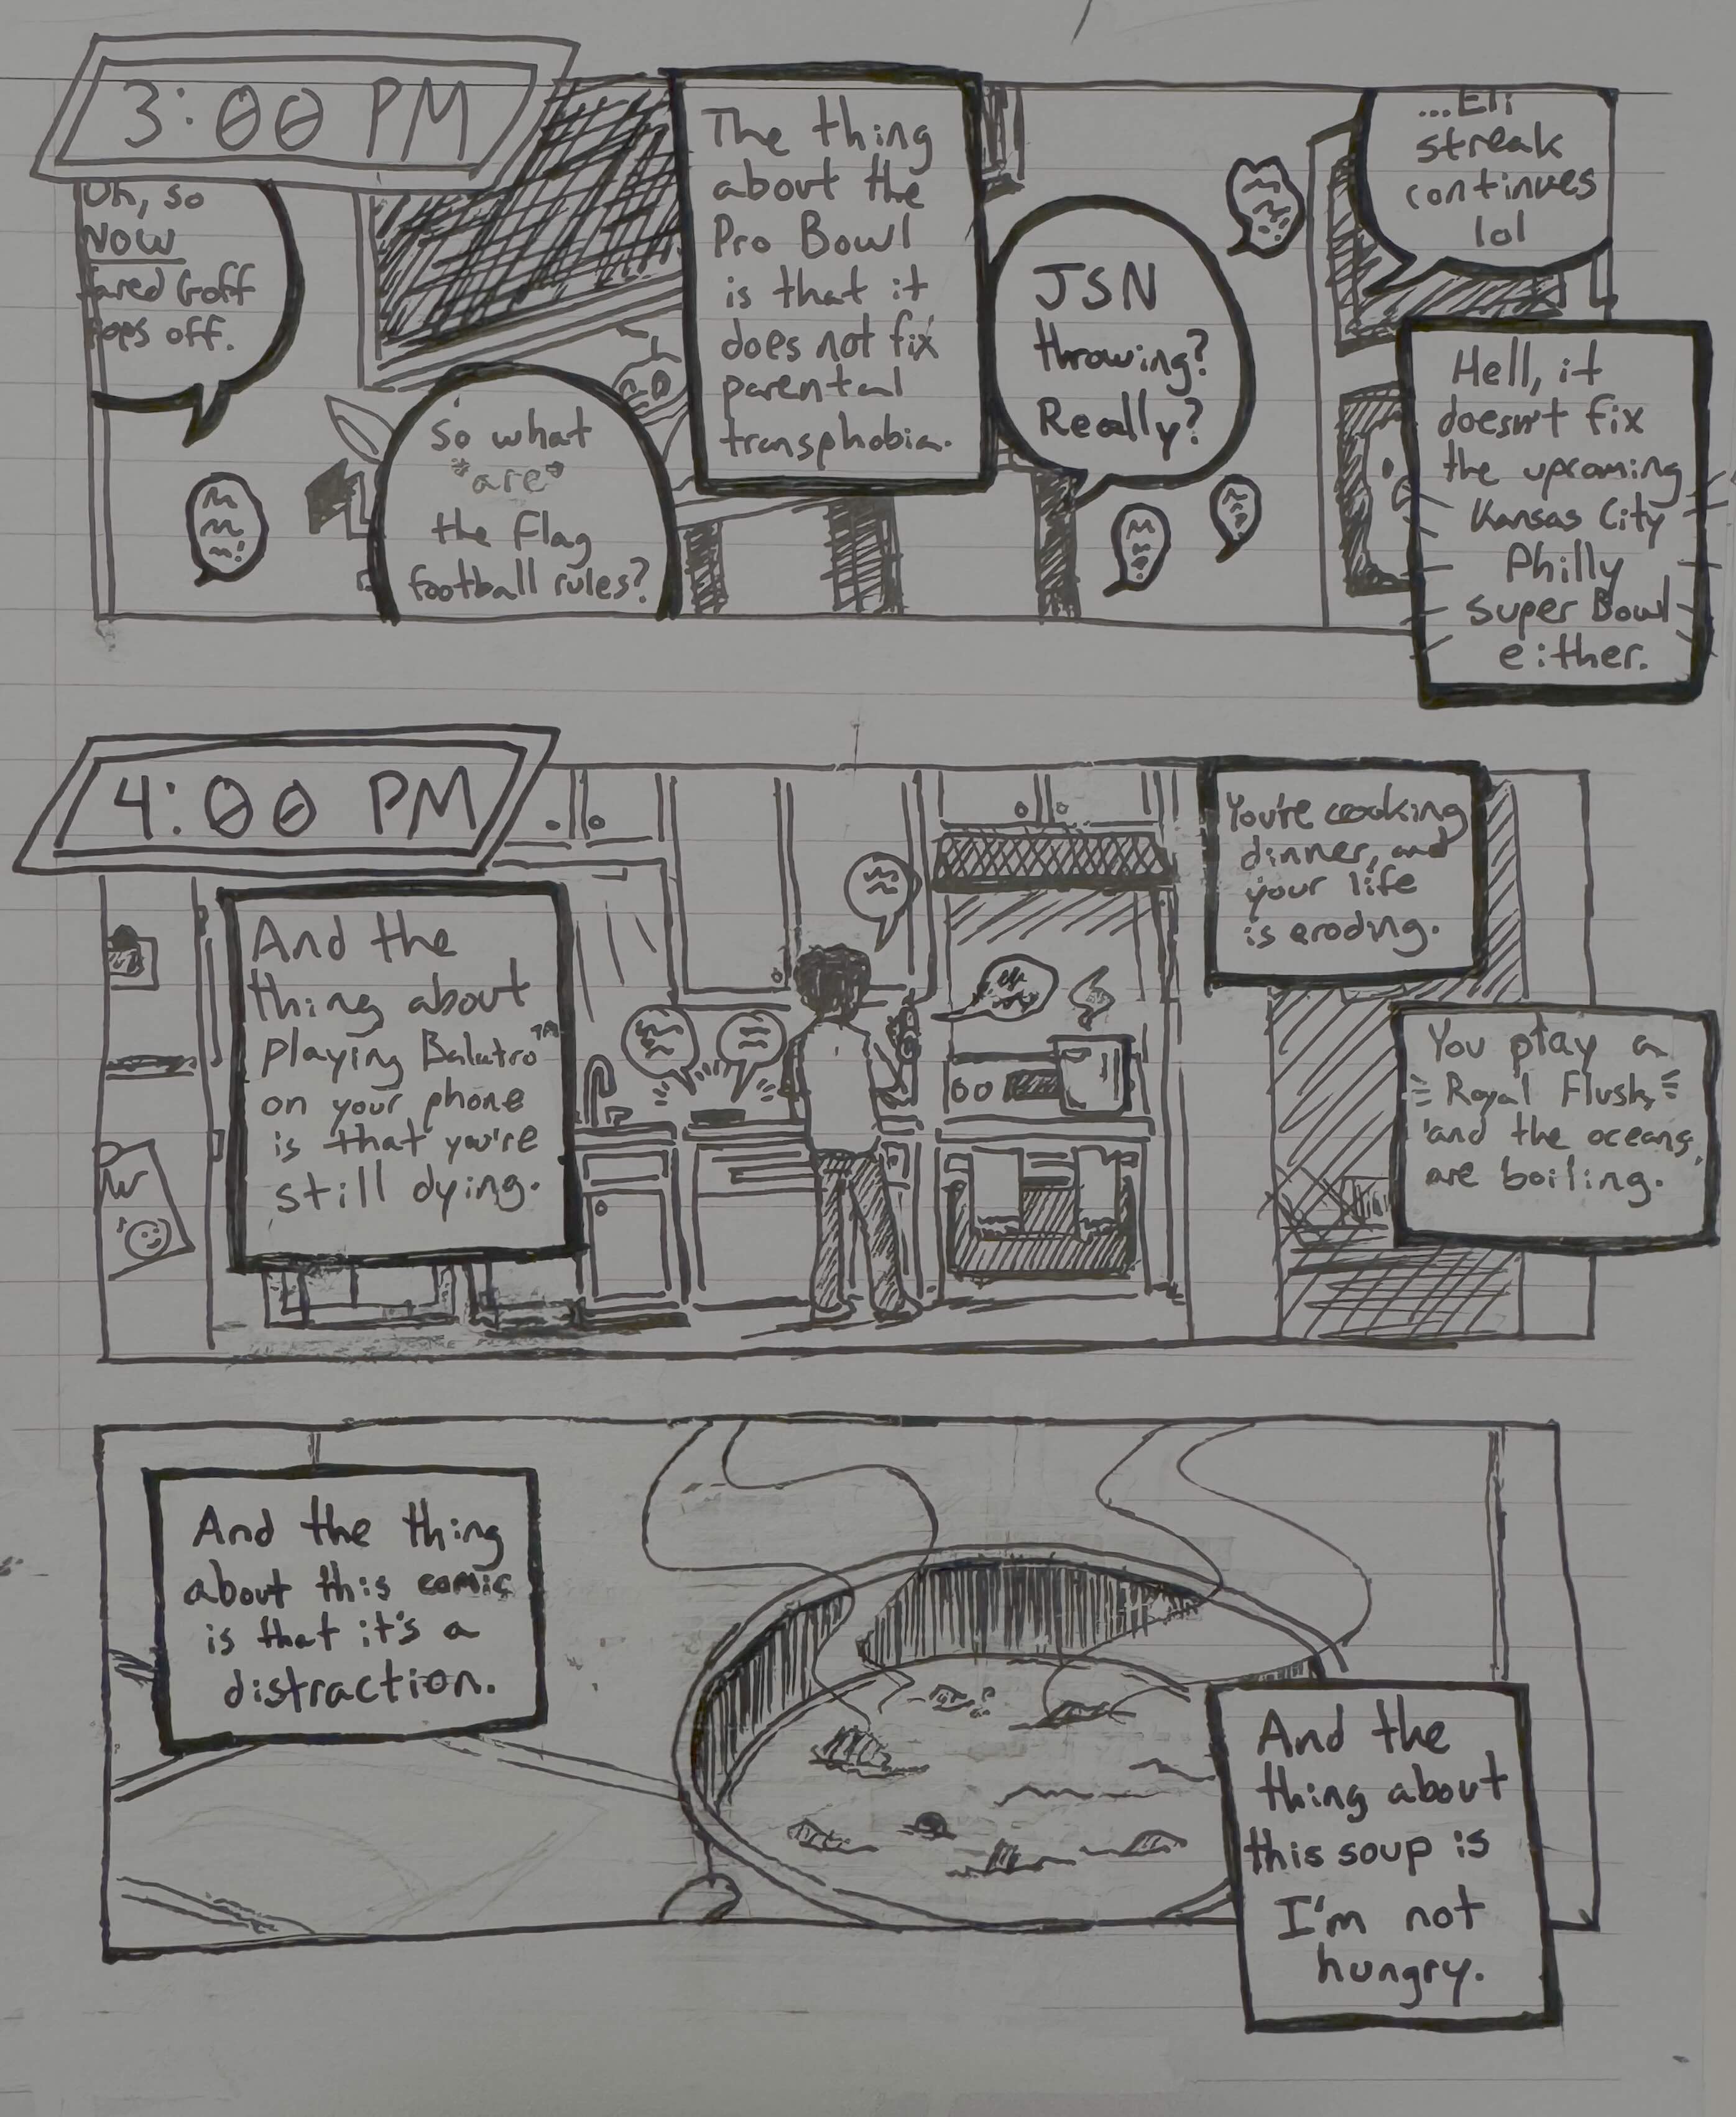 3:00 PM
Oh, so
NOW
Jared Goff
pops off.
So what
*are*
the flag
football rules?
The thing
about the
Pro Bowl
is that it
does not fix
parental
transphobia.
JSN
throwing?
Really?
...Eli
streak
continues
lol
Hell, it
doesn't fix
the upcoming
Kansas City
Philly
Super Bowl
either.
4:00 PM
And the
thing about
playing Balatro™
on your phone
is that you're
still dying.
You're cooking
dinner, and
your life
is eroding.
You play a
Royal Flush,
and the oceans
are boiling.
And the thing
about this comic
is that it's a
distraction.
And the
thing about
this soup is
I'm not
hungry.